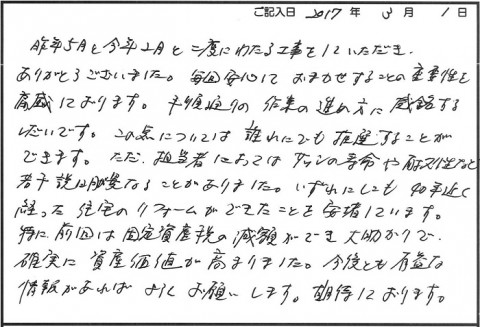 ご記入日 2017 年 3 月 1 日
昨年5月と今年2月と二度にわたる工事をしていただき、
ありがとうございました。毎回安心しておまかせすることの重要性を
痛感しております。予定通りの作業の進め方に感銘する
しだいです。この点については誰れにでも推薦することが
できます。ただ、担当者によってはサッシの寿命や耐久性など
若干説明不足なることがありました。いずれにしても40年近く
経った住宅のリフォームができたことを安堵しています。
特に前回は固定資産税の減額ができ大助かりで、
確実に資産価値が高まりました。今後とも有益な
情報があればよろしくお願いします。期待しております。